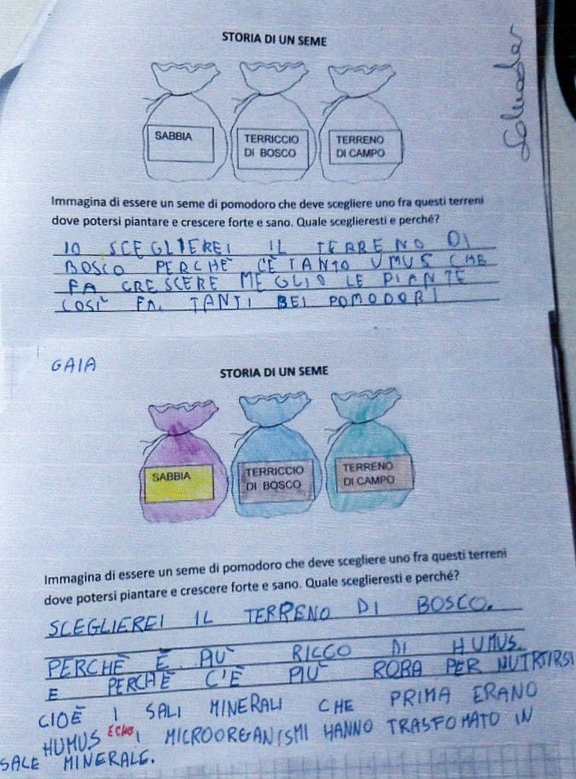 STORIA DI UN SEME
SABBIA
TERRICCIO
DI BOSCO
TERRENO
DI CAMPO
Immagina di essere un seme di pomodoro che deve scegliere uno fra questi terreni
dove potersi piantare e crescere forte e sano. Quale sceglieresti e perché?
IO SCEGLIEREI IL TERRENO DI
BOSCO PERCHE' C'È TANTO UMUS CHE
FA CRESCERE MEGLIO LE PIANTE
COSI' FA TANTI BEI POMODORI
GAIA
STORIA DI UN SEME
SABBIA
TERRICCIO
DI BOSCO
TERRENO
DI CAMPO
Immagina di essere un seme di pomodoro che deve scegliere uno fra questi terreni
dove potersi piantare e crescere forte e sano. Quale sceglieresti e perché?
SCEGLIEREI IL TERRENO DI BOSCO.
PERCHÈ È PIU' RICCO DI HUMUS
E PERCHÈ C'È PIU' ROBA PER NUTRIRSI
CIOÈ I SALI MINERALI CHE PRIMA ERANO
HUMUS E CHE I MICROORGANISMI HANNO TRASFOMATO IN
SALE MINERALE.